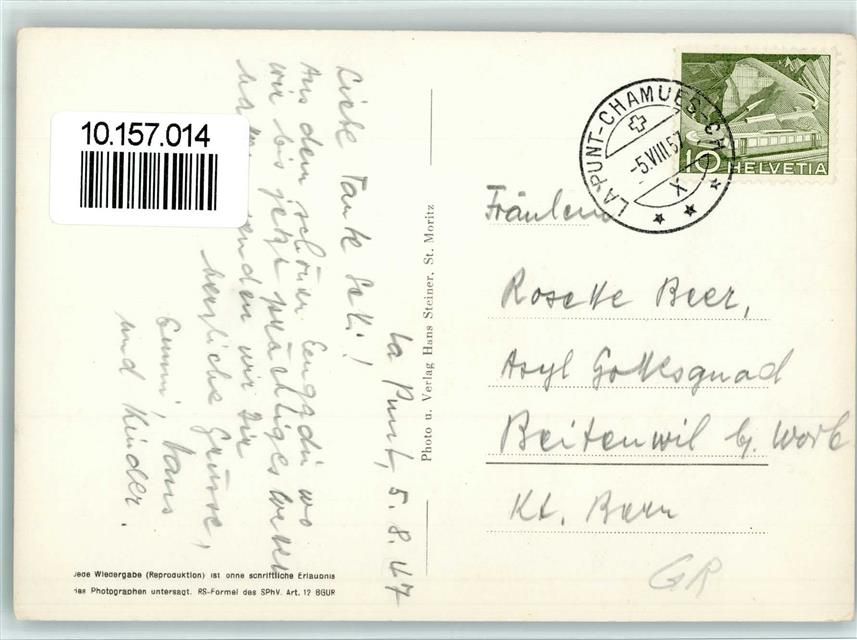 10.157.014
La Punt, 5. 8. 47
Liebe Tante Seti!
Aus dem schönen Engadin wo
wir bis jetzt prächtiges Wetter
senden wir Dir
herzliche Grüsse,
Emmi, Hans
und Kinder.
Photo u. Verlag Hans Steiner, St. Moritz
Jede Wiedergabe (Reproduktion) ist ohne schriftliche Erlaubnis
des Photographen untersagt. RS-Formel des SPhV. Art. 12 BGUR
LA PUNT-CHAMUES-CH
-5.VIII.57
X
10 HELVETIA
Fräulein
Rosette Beer,
Asyl Gottesgnad
Beitenwil b/ Worb
Kt. Bern
GR